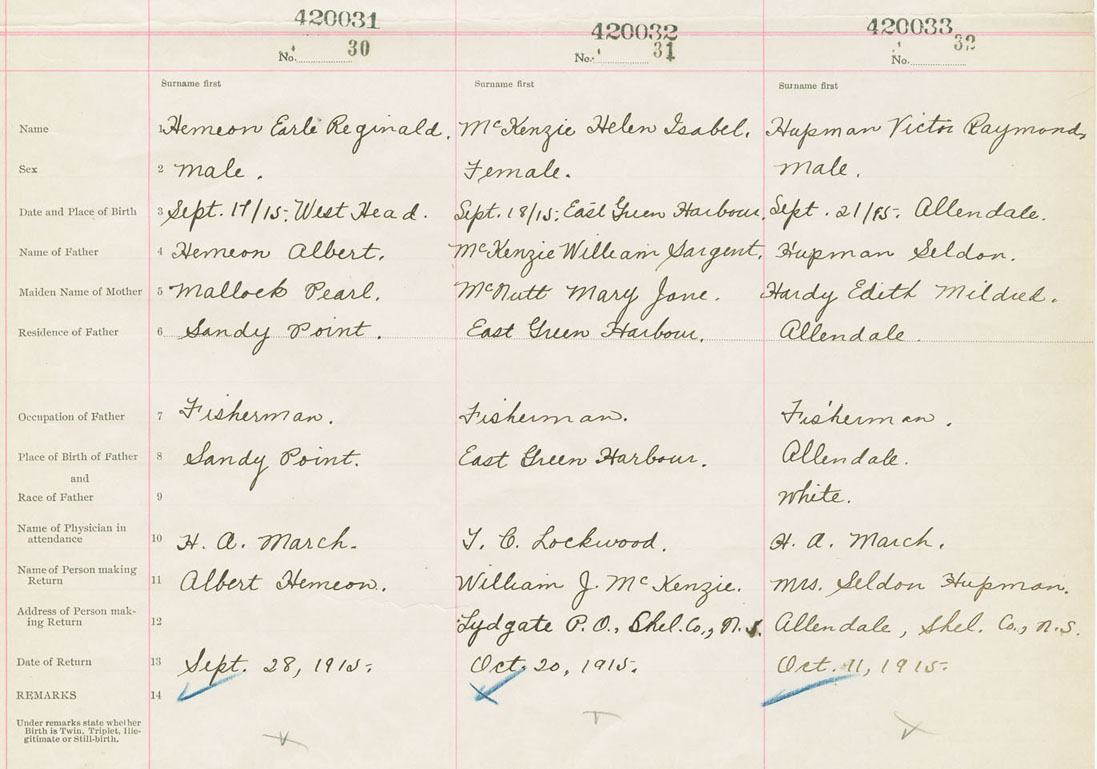 420031 420032 420033
No. 30 No. 31 No. 32
Surname first Surname first Surname first
Name 1 Hemeon Earle Reginald. McKenzie Helen Isabel. Hupman Victor Raymond,
Sex 2 male. Female. male.
Date and Place of Birth 3 Sept. 17/15; West Head. Sept. 18/15; East Green Harbour. Sept. 21/15. Allendale.
Name of Father 4 Hemeon Albert. McKenzie William Sargent. Hupman Seldon.
Maiden Name of Mother 5 Mallock Pearl. McNutt Mary Jane. Hardy Edith Mildred.
Residence of Father 6 Sandy Point. East Green Harbour. Allendale.
Occupation of Father 7 Fisherman. Fisherman. Fisherman.
Place of Birth of Father 8 Sandy Point. East Green Harbour. Allendale.
and
Race of Father 9 white.
Name of Physician in
attendance 10 H. A. March. T. C. Lockwood. H. A. March.
Name of Person making
Return 11 Albert Hemeon. William J. McKenzie. Mrs. Seldon Hupman.
Address of Person mak-
ing Return 12 Lydgate P.O., Shel. Co., N.S. Allendale, Shel. Co., N.S.
Date of Return 13 Sept. 28, 1915. Oct. 20, 1915. Oct. 11, 1915.
REMARKS 14
Under remarks state whether
Birth is Twin, Triplet, Ille-
gitimate or Still-birth.